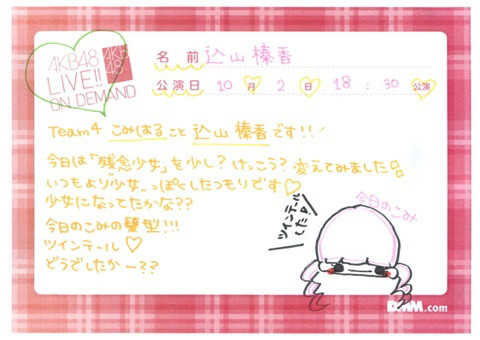 AKB48
LIVE!!
ON DEMAND
AKB
48
名 前 込山 榛香
公演日 10 月 2 日 18 : 30 公演
Team4 こみはること 込山 榛香です!!
今日は「残念少女」を少し? けっこう? 変えてみました
いつもより少女っぽくしたつもりです♡
少女になってたかな??
今日のこみの髪型!!!
ツインテール♡
どうでしたかー??
ツインテールだよ
今日のこみ
DMM.com